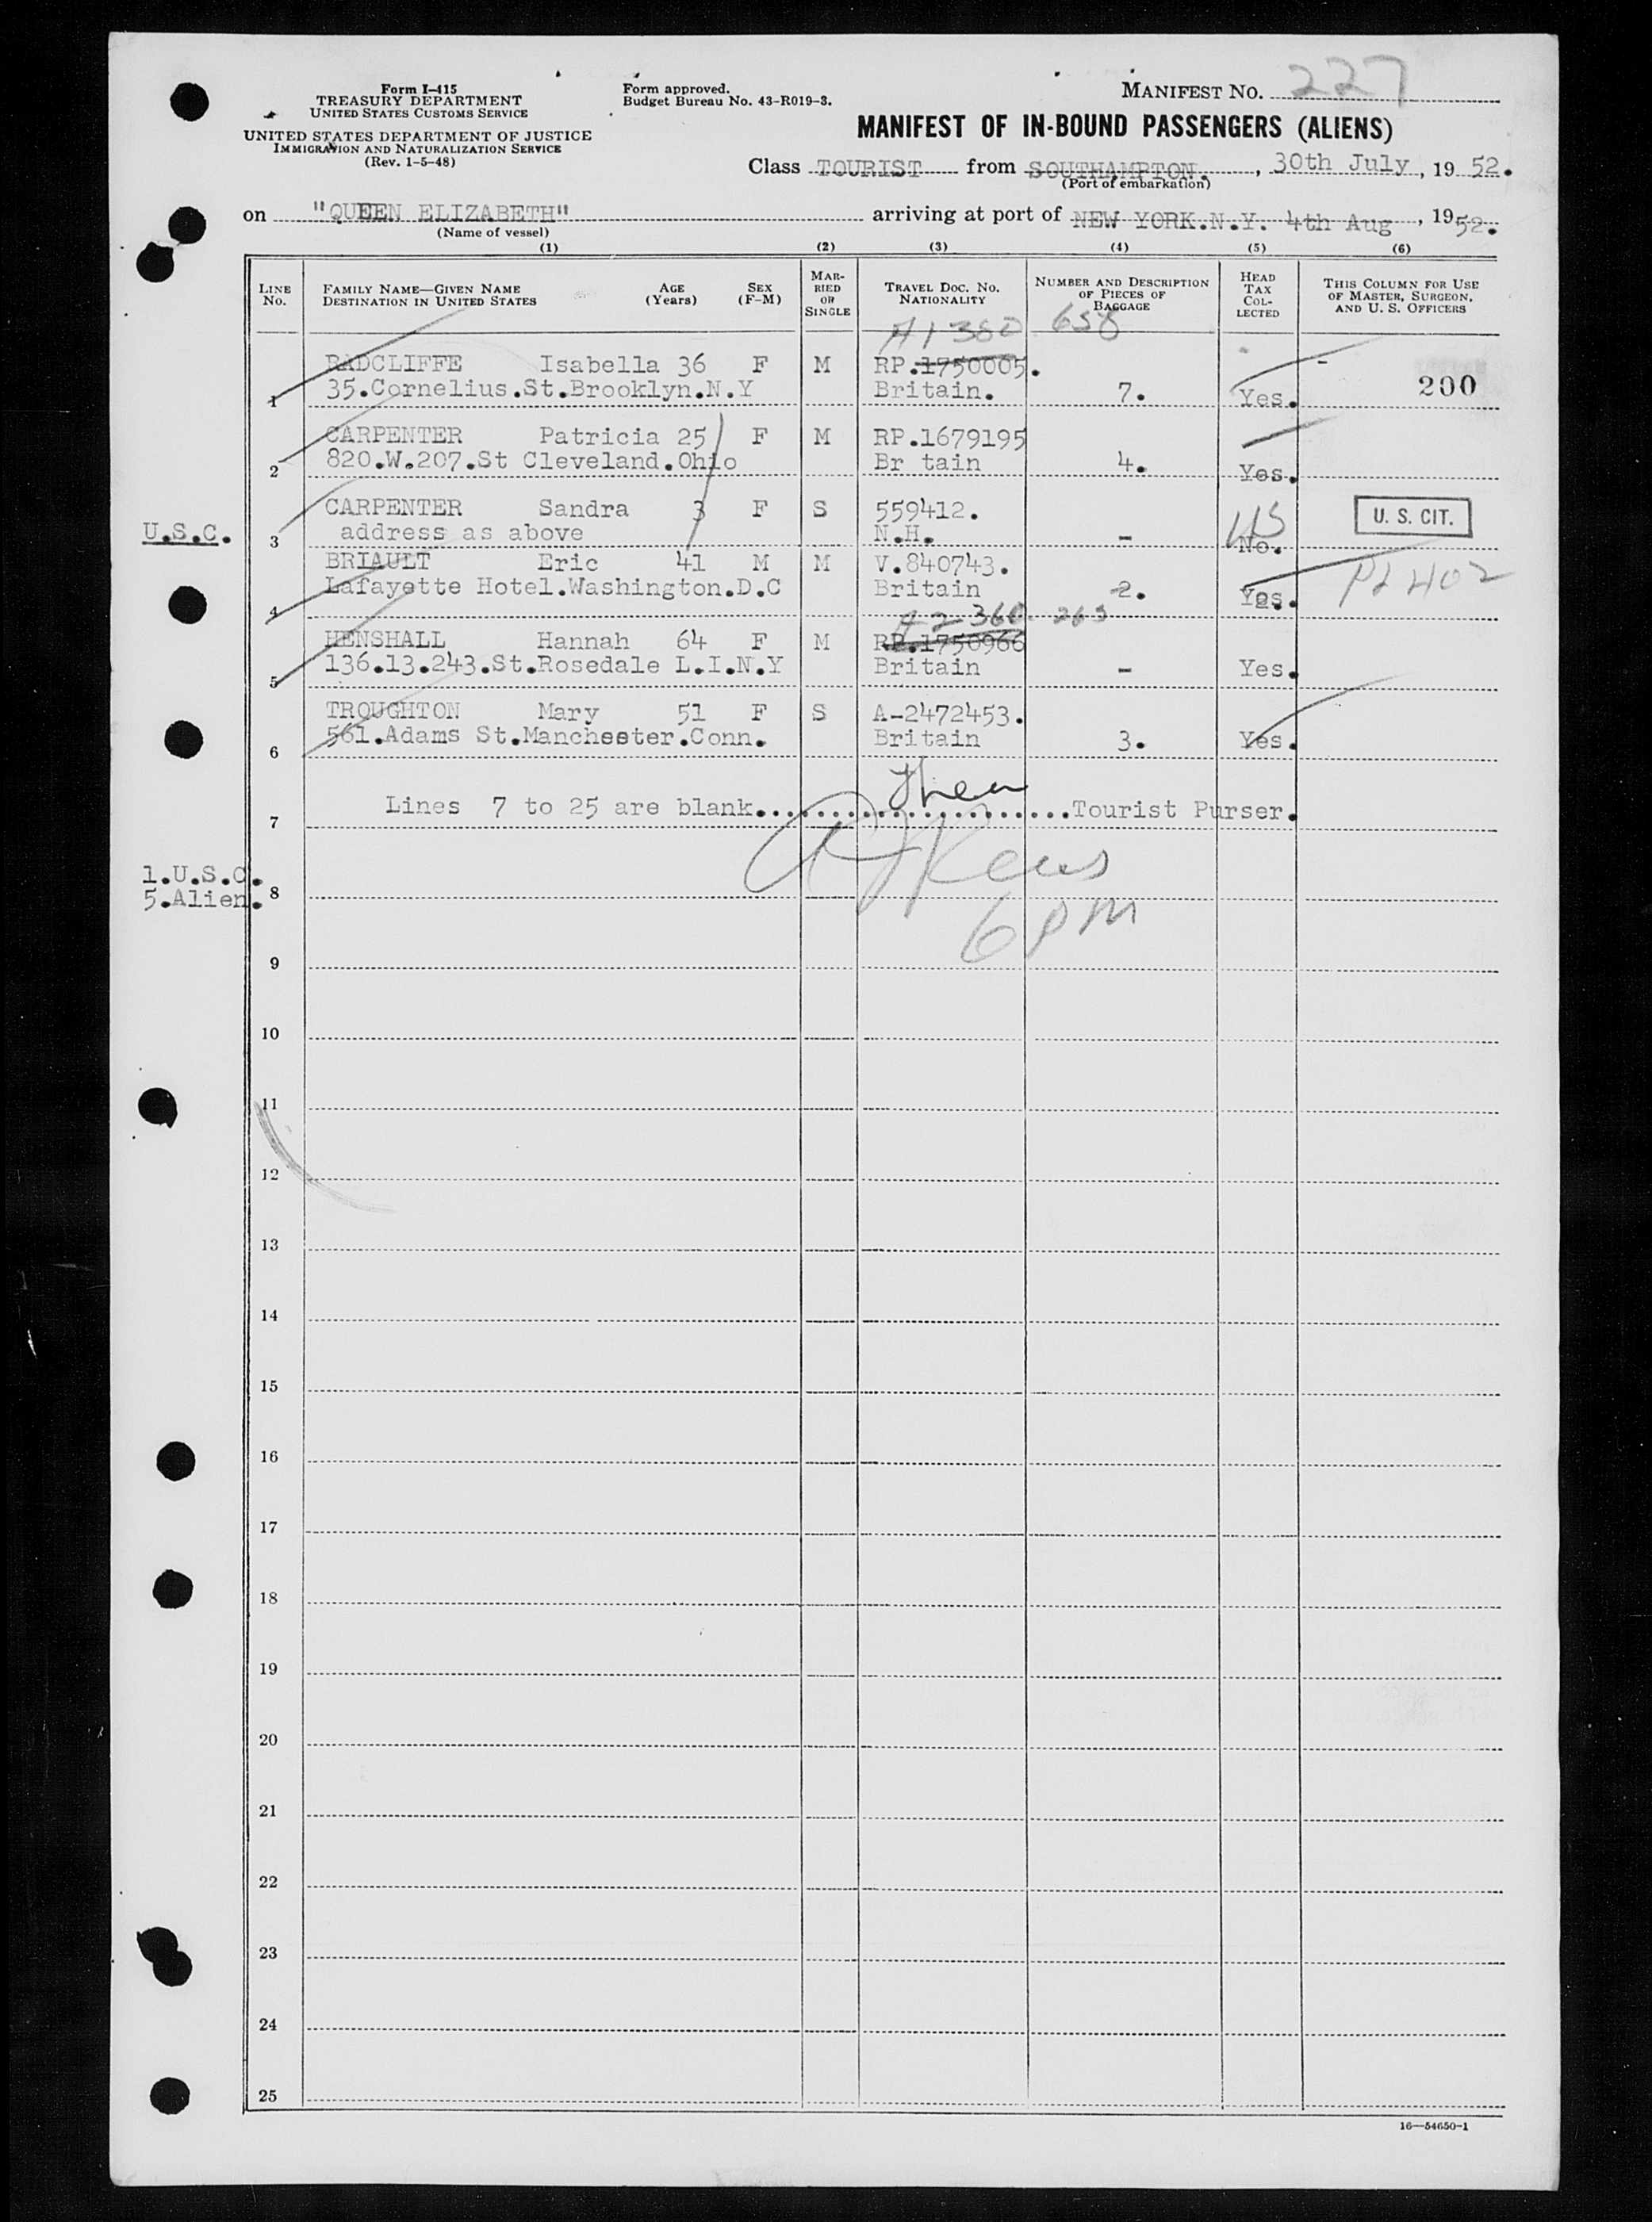 Form I-415
TREASURY DEPARTMENT
UNITED STATES CUSTOMS SERVICE
UNITED STATES DEPARTMENT OF JUSTICE
IMMIGRATION AND NATURALIZATION SERVICE
(Rev. 1-5-48)
Form approved.
Budget Bureau No. 43-R019-3.
MANIFEST No. 227
MANIFEST OF IN-BOUND PASSENGERS (ALIENS)
Class TOURIST from SOUTHAMPTON. , 30th July , 19 52.
(Port of embarkation)
on "QUEEN ELIZABETH" arriving at port of NEW YORK.N.Y. 4th Aug , 1952.
(Name of vessel)
(1) (2) (3) (4) (5) (6)
LINE No.
FAMILY NAME—GIVEN NAME AGE (Years) SEX (F-M)
DESTINATION IN UNITED STATES
MARRIED OR SINGLE
TRAVEL DOC. NO. NATIONALITY
NUMBER AND DESCRIPTION OF PIECES OF BAGGAGE
HEAD TAX COLLECTED
THIS COLUMN FOR USE OF MASTER, SURGEON, AND U. S. OFFICERS
A1 380 658
RADCLIFFE Isabella 36 F M RP.1750005.
1 35.Cornelius.St.Brooklyn.N.Y Britain. 7. Yes. 200
CARPENTER Patricia 25 F M RP.1679195
2 820.W.207.St Cleveland.Ohio Br tain 4. Yes.
CARPENTER Sandra 3 F S 559412. US U. S. CIT.
U.S.C. 3 address as above N.H. - No.
BRIAULT Eric 41 M M V.840743.
4 Lafayette Hotel.Washington.D.C Britain 2. Yes. P2 402
A2 360 263
HENSHALL Hannah 64 F M RP.1750966
5 136.13.243.St.Rosedale L.I.N.Y Britain - Yes.
TROUGHTON Mary 51 F S A-2472453.
6 561.Adams St.Manchester.Conn. Britain 3. Yes.
7 Lines 7 to 25 are blank..........................Tourist Purser.
1.U.S.C.
5.Alien. 8
6 PM
9
10
11
12
13
14
15
16
17
18
19
20
21
22
23
24
25
16—54650-1